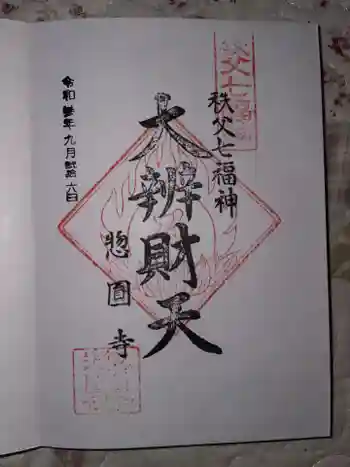 秩父七福
秩父七福神
大辨財天
惣圓寺
令和叁年九月弐拾六日